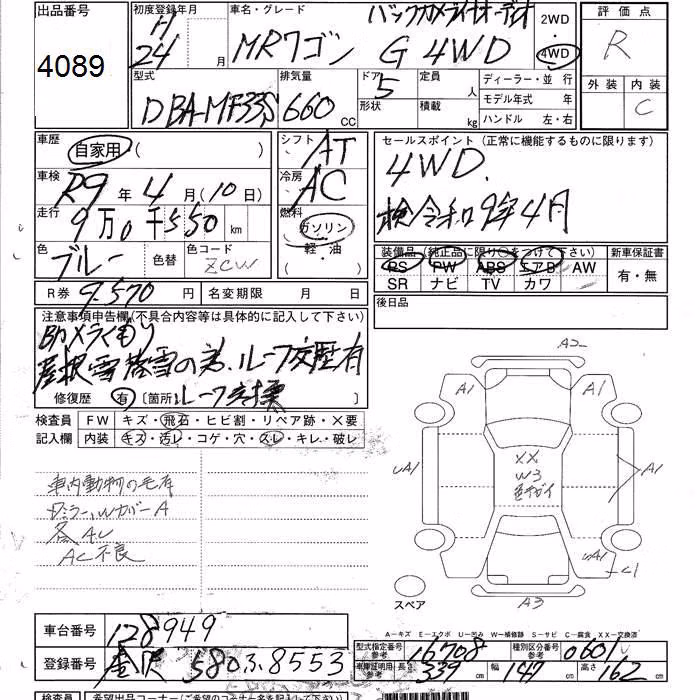 出品番号
4089
初度登録年月
H
24 月
車名・グレード バックカメラ オーディオ
MRワゴン G 4WD
2WD
4WD
評価点
R
外装 内装
C
型式
DBA-MF33S
排気量
660 CC
ドア 5
形状
定員 人
積載 kg
ディーラー・並行
モデル年式 年
ハンドル 左・右
車歴 自家用 ( )
車検 R9 年 4 月 (10 日)
走行 9万0千550 km
色 ブルー 色替
色コード ZCW
シフト AT
冷房 AC
燃料 ガソリン
(軽・油)
セールスポイント (正常に機能するものに限ります)
4WD.
検令和9年4月
装備品 (純正品に限り○をつけて下さい) 新車保証書
PS PW ABS エアB AW
SR ナビ TV カワ
有・無
後日品
R券 9.570 円 名変期限 月 日
注意事項申告欄(不具合内容等は具体的に記入して下さい)
雪の為、ルーフ交歴有
修復歴 有 [箇所: ルーフ ]
検査員 FW キズ・飛石・ヒビ割・リペア跡・×要
記入欄 内装 キズ・汚レ・コゲ・穴・スレ・キレ・破レ
車内動物の毛有
ドミラー、WカバーA
各AU
AC不良
A2
A1 A1
UA1 A1
XX
W3
色チガイ
UA1
C1
A3
スペア
車台番号 128949
登録番号 金沢 580 ふ 8553
A－キズ E－エクボ U－凹み W－補修跡 S－サビ C－腐食 XX－交換済
型式指定番号 参考 16708 種別区分番号 参考 0601
車庫証明用 参考 長さ 339 幅 147 高さ 162 cm
検査員 希望出品コーナー(ご希望のコーナー名を記入して下さい)